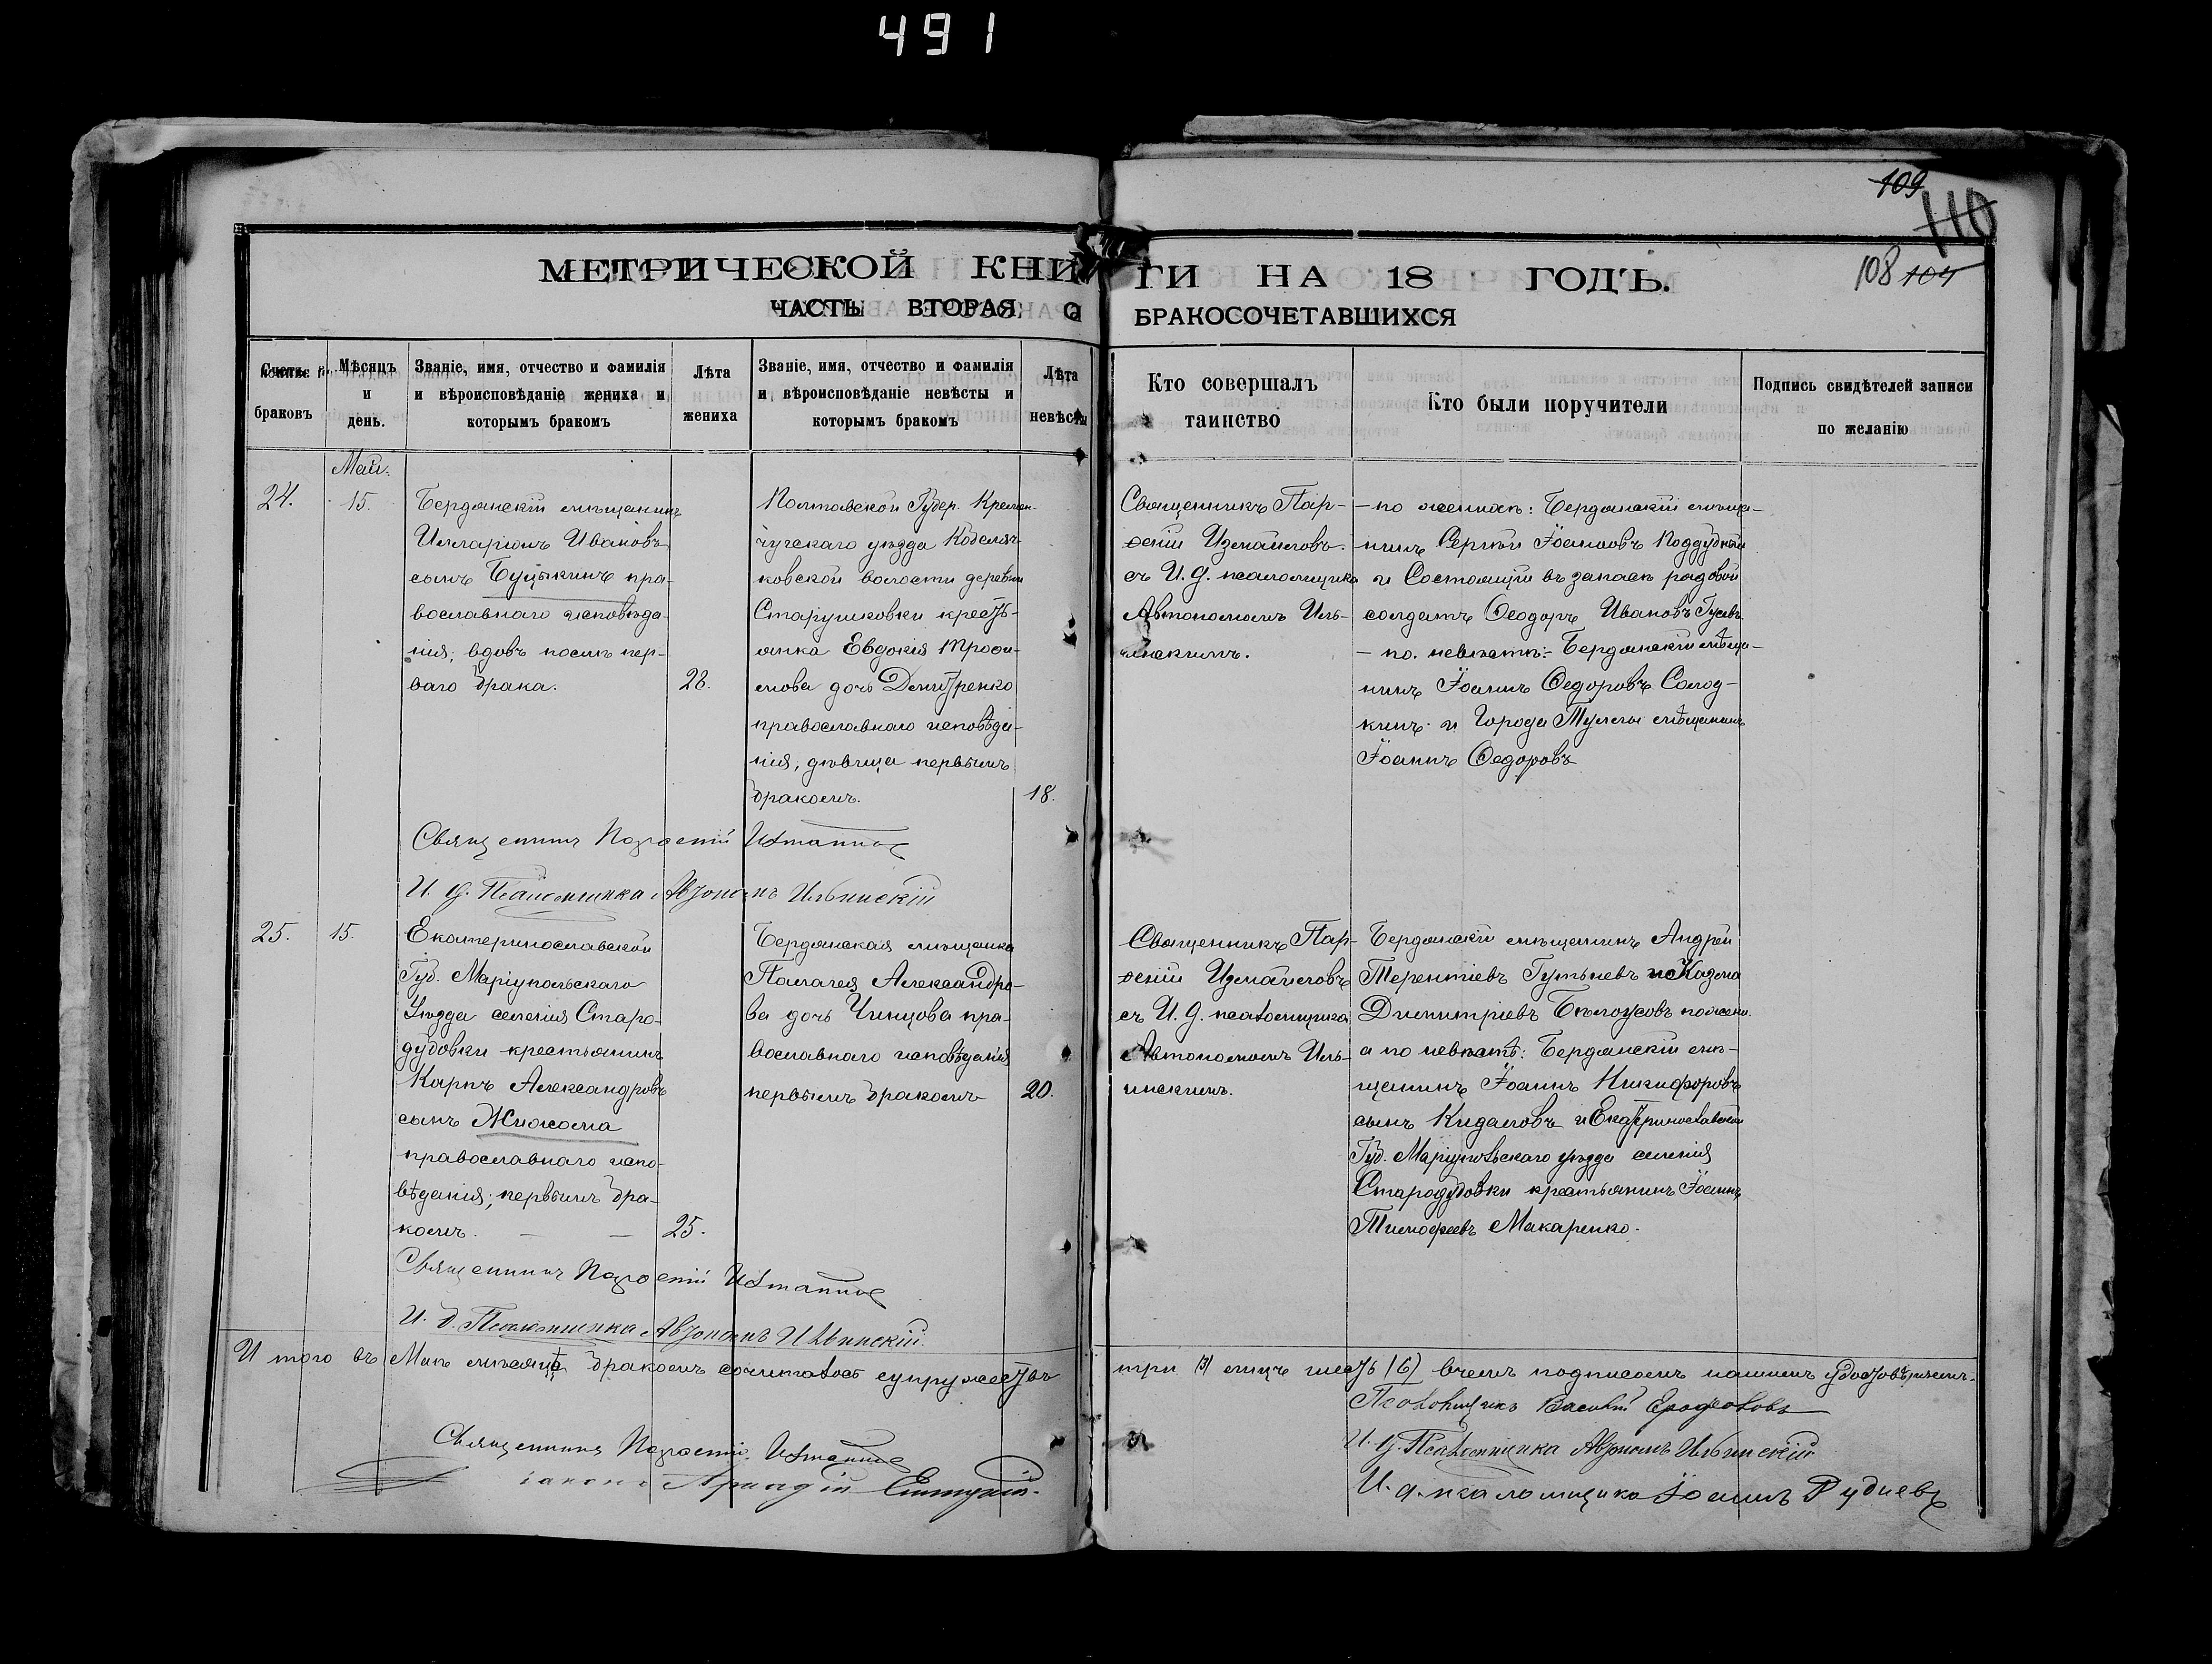 491
109
110
108 104
МЕТРИЧЕСКОЙ КНИГИ НА 18 ГОДЪ.
ЧАСТЬ ВТОРАЯ О БРАКОСОЧЕТАВШИХСЯ
Счетъ браковъ
Мѣсяцъ и день.
Званіе, имя, отчество и фамилія и вѣроисповѣданіе жениха и которымъ бракомъ
Лѣта жениха
Званіе, имя, отчество и фамилія и вѣроисповѣданіе невѣсты и которымъ бракомъ
Лѣта невѣсты
Кто совершалъ таинство
Кто были поручители
Подпись свидѣтелей записи по желанію
Май.
24.
15.
Бердянскій мѣщанинъ
Илларіонъ Ивановъ
сынъ Буцыкинъ пра-
вославнаго исповѣда-
нія; вдовъ послѣ пер-
ваго брака.
28.
Полтавской Губер. Кремен-
чугскаго уѣзда Кобеляч-
ковской волости деревни
Старушковки крестъ-
янка Евдокія Трофи-
мова дочь Дмитренко
православнаго исповѣда-
нія, дѣвица первымъ
бракомъ.
18.
Священникъ Пар-
ѳеній Измаиловъ
съ И. д. псаломщика
Автономомъ Иль-
инскимъ.
- по женихѣ: Бердянскій мѣща-
нинъ Сергѣй Іоанновъ Поддубный
и Состоящій въ запасѣ рядовой
солдатъ Ѳеодоръ Ивановъ Гусевъ
- по невѣстѣ: Бердянскій мѣща-
нинъ Іоаннъ Ѳедоровъ Солод-
кинъ и Города Тулы мѣщанинъ
Іоаннъ Ѳедоровъ
Священникъ Парѳеній Измаиловъ
И. д. Псаломщика Автономъ Ильинскій
25.
15.
Екатеринославской
Губ. Маріупольскаго
Уѣзда селенія Старо-
дубовки крестьянинъ
Карпъ Александровъ
сынъ Жижома
православнаго испо-
вѣданія; первымъ бра-
комъ.
25.
Бердянская мѣщанка
Пелагея Александро-
ва дочь Чинцова пра-
вославнаго исповѣданія
первымъ бракомъ
20.
Священникъ Пар-
ѳеній Измаиловъ
съ И. д. псаломщика
Автономомъ Иль-
инскимъ.
Бердянскій мѣщанинъ Андрей
Терентіевъ Гутыевъ и Козьма
Димитріевъ Бѣлоусовъ по жени.
а по невѣстѣ: Бердянскій мѣ-
щанинъ Іоаннъ Никифоровъ
сынъ Кидаловъ и Екатеринославской
Губ. Маріупольскаго уѣзда селенія
Стародубовки крестьянинъ Іоаннъ
Тимофеевъ Макаренко.
Священникъ Парѳеній Измаиловъ
И. д. Псаломщика Автономъ Ильинскій
И того въ Маѣ мѣсяцѣ бракомъ сочиталось супружествъ три (3) лицъ шесть (6) в чемъ подписомъ нашимъ удостовѣряемъ.
Священникъ Парѳеній Измаиловъ
Псаломщикъ Василій Ерофаловъ
И. д. Псаломщика Автономъ Ильинскій
И. д. псаломщика Іоаннъ Рудневъ